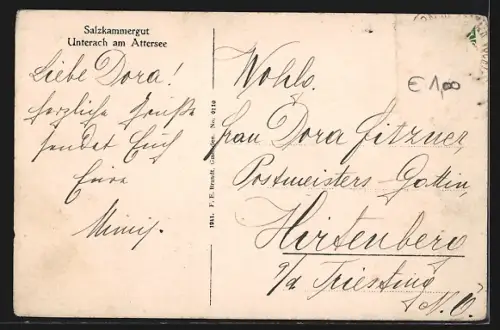 Salzkammergut
Unterach am Attersee
Liebe Dora!
herzliche Grüße
sendet Euch
Eure
Minny.
1911. F. E. Brandt, Gmunden. No. 9110
€ 1,00
Wohlg.
Frau Dora Fitzner,
Postmeisters-Gattin,
Hirtenberg
a/d Triesting
N. Ö.